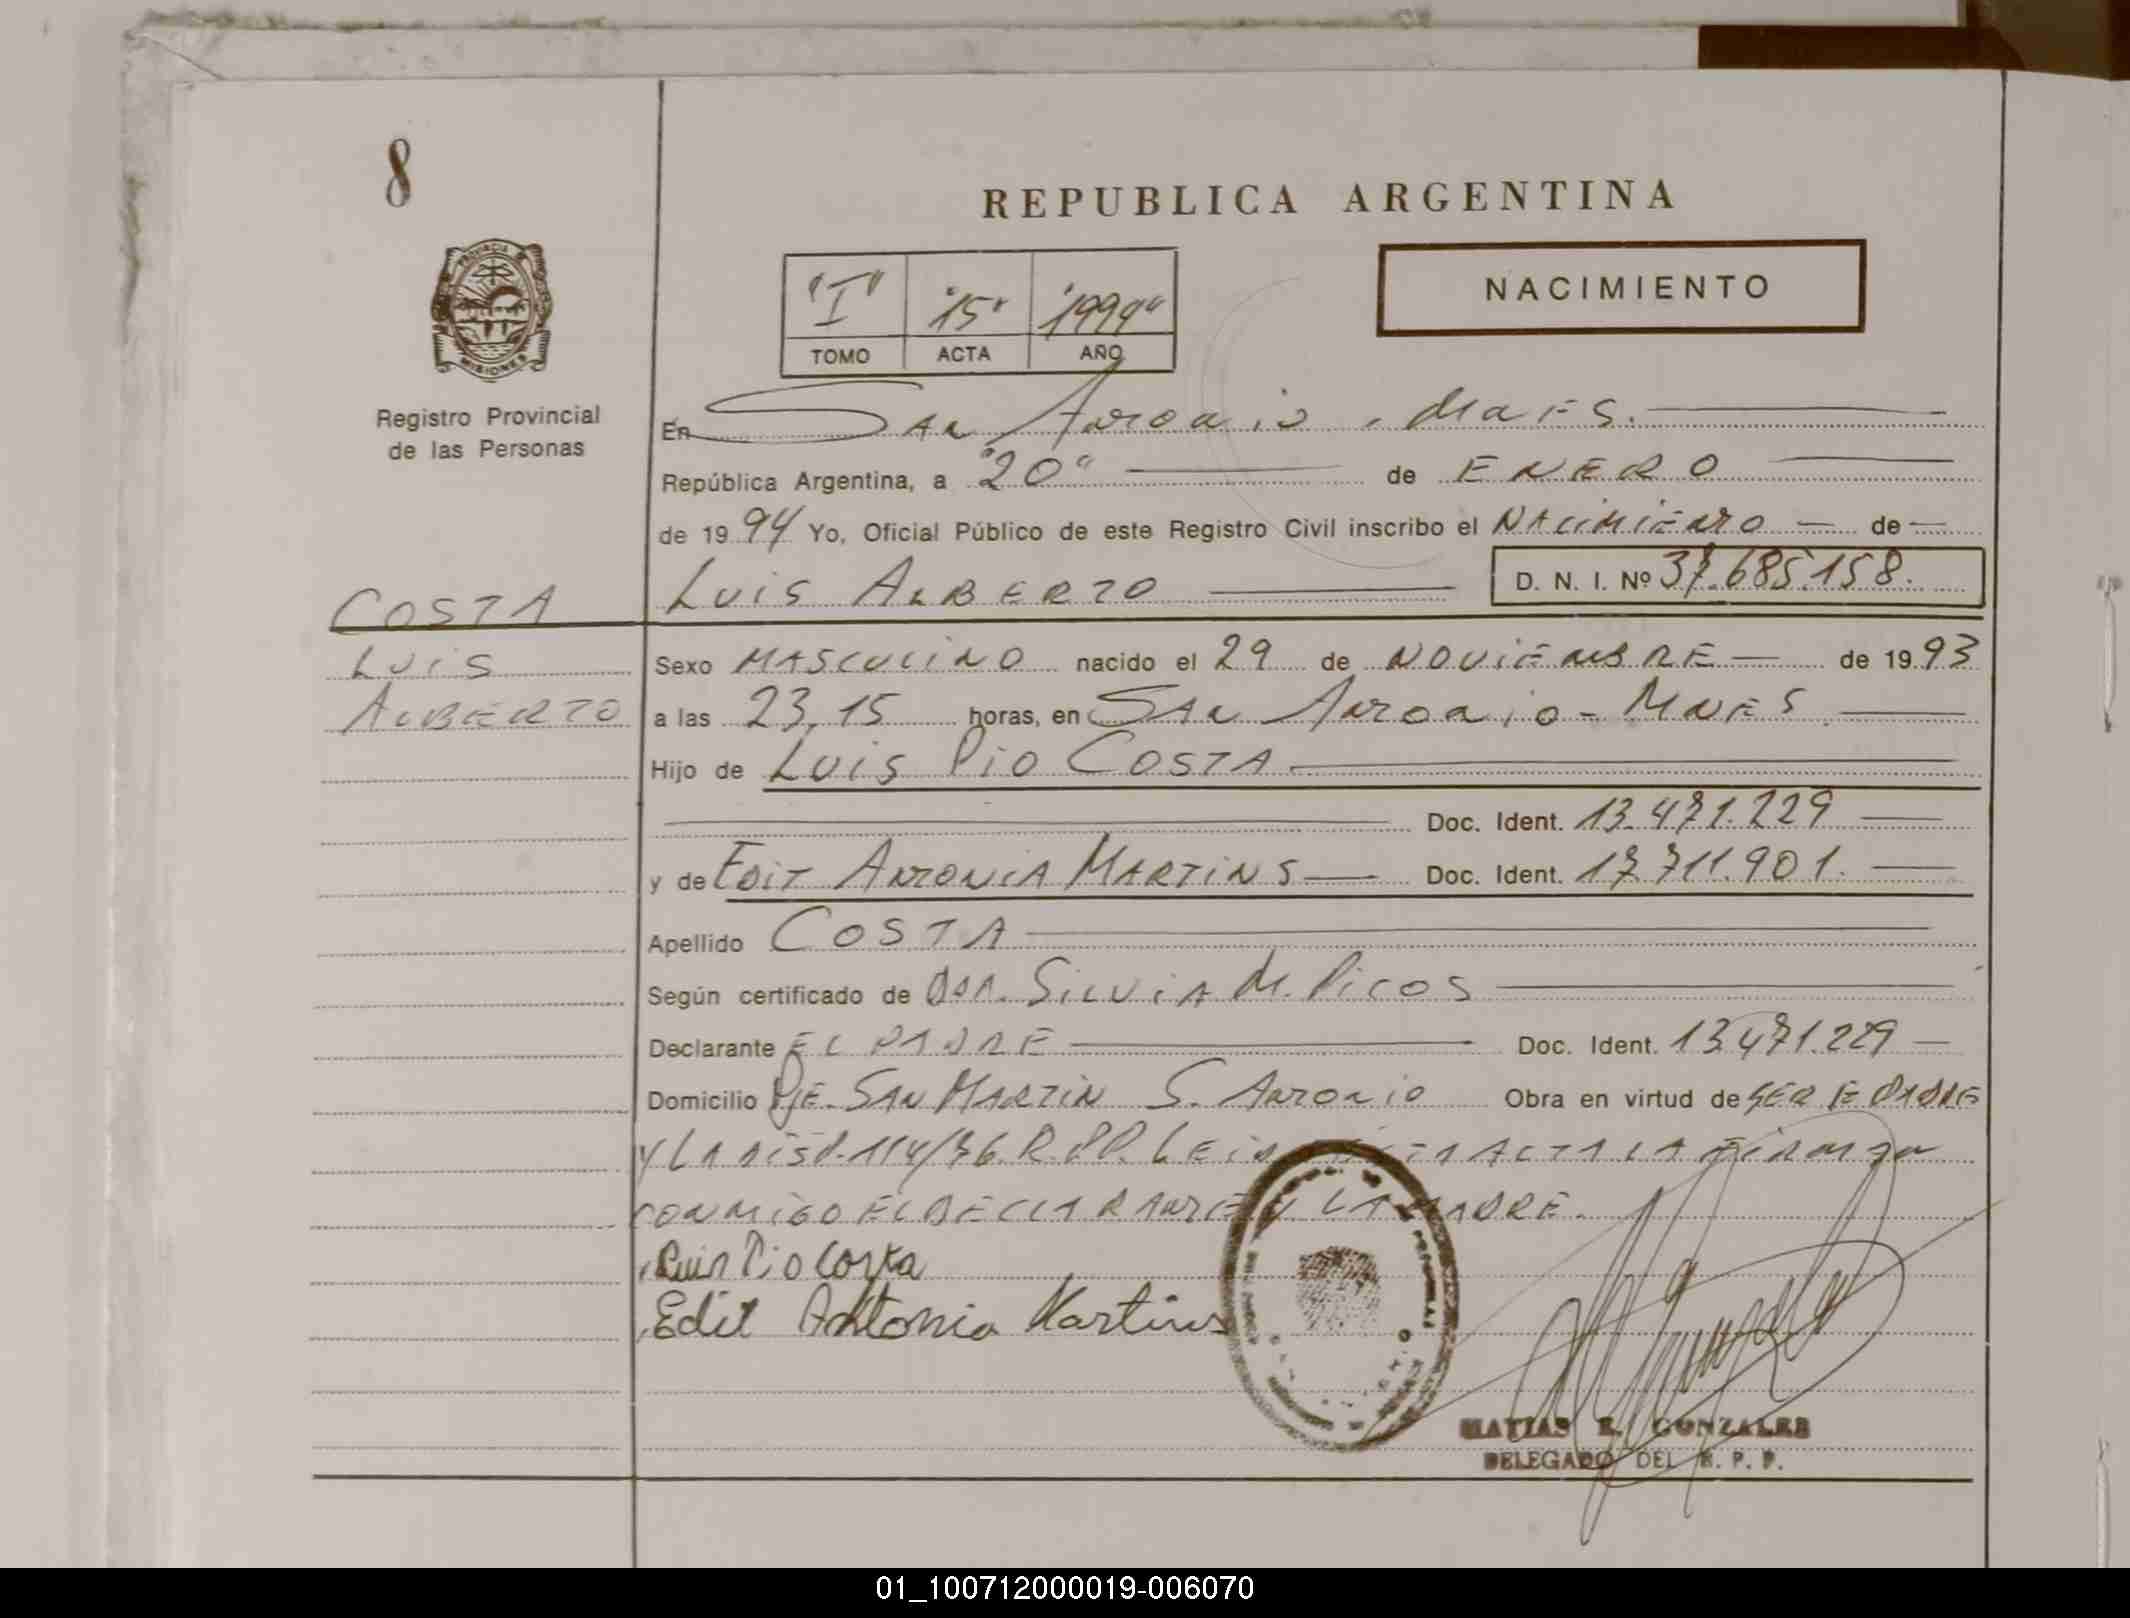 8
REPUBLICA ARGENTINA
PROVINCIA
MISIONES
"I" "15" "1994"
TOMO ACTA AÑO
NACIMIENTO
Registro Provincial
de las Personas
En San Antonio, Mnes.
República Argentina, a "20" de ENERO
de 1994 Yo, Oficial Público de este Registro Civil inscribo el NACIMIENTO de
COSTA
LUIS ALBERTO D. N. I. Nº 37.685.158.
LUIS
ALBERTO
Sexo MASCULINO nacido el 29 de NOVIEMBRE de 1993
a las 23,15 horas, en SAN Antonio - MNES
Hijo de LUIS PIO COSTA
Doc. Ident. 13.471.229
y de EDIT ANTONIA MARTINS Doc. Ident. 17.711.901.
Apellido COSTA
Según certificado de DRA. SILVIA M. PICOS
Declarante EL PADRE Doc. Ident. 13.471.229
Domicilio PJE. SAN MARTIN S. ANTONIO Obra en virtud de SER E PADRE
Y LA DISP. 114/76. R.P.P. LEIDA ACTA LA FIRMAN
CONMIGO EL DECLARANTE Y LA MADRE.
Luis Pio Costa
Edit Antonia Martins
MATIAS E. GONZALES
DELEGADO DEL R. P. P.
01_100712000019-006070